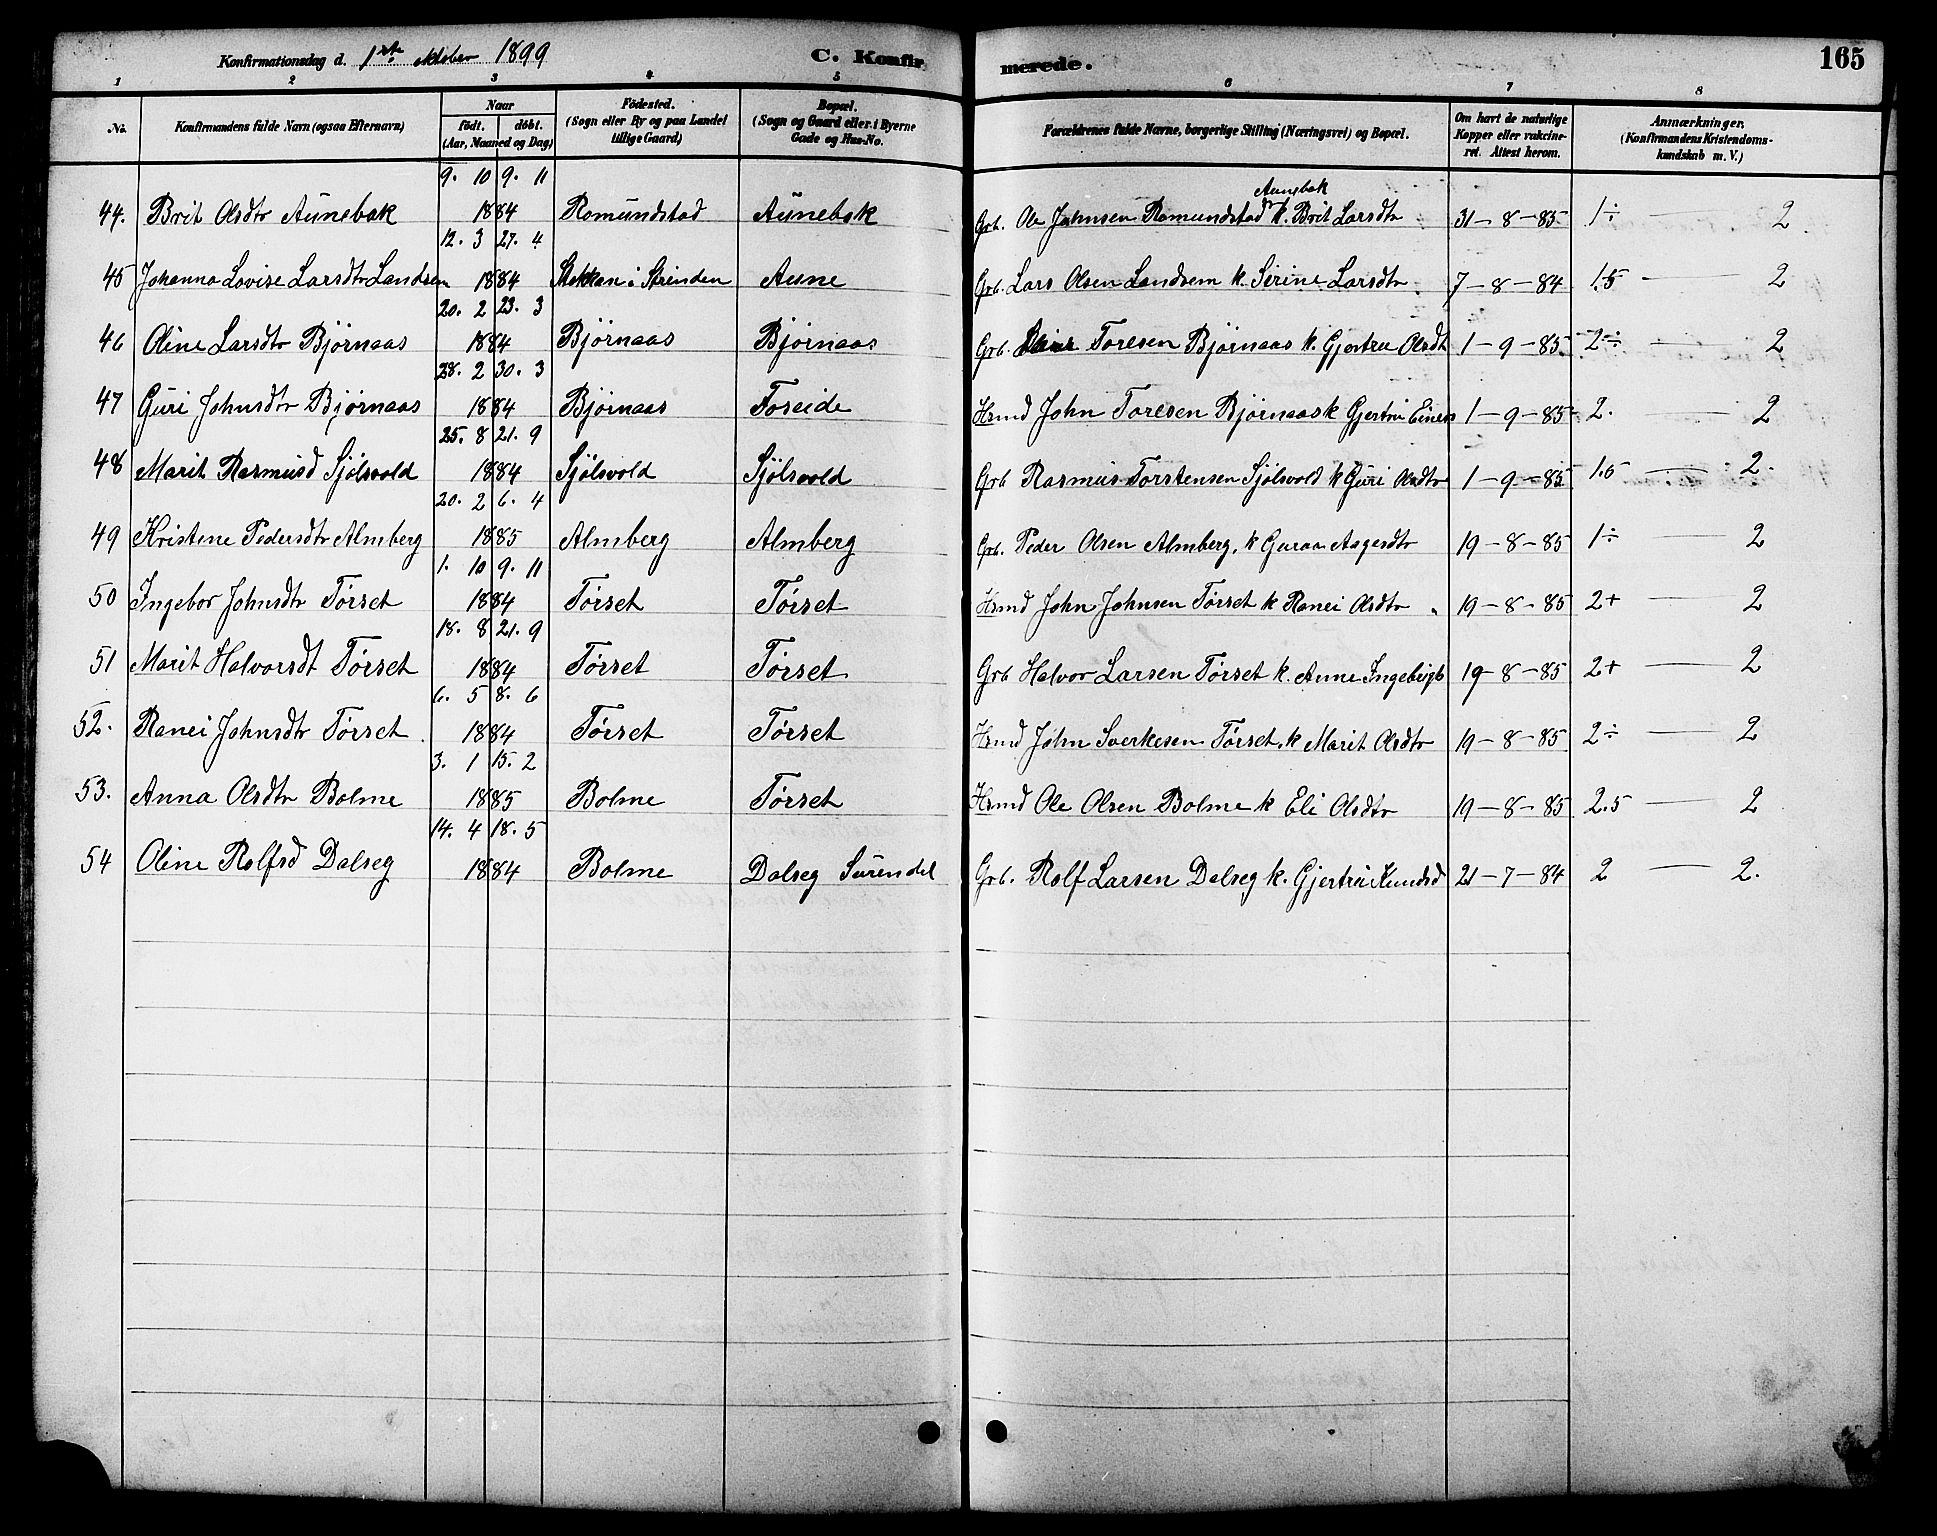 Konfirmationsdag d. 1ste oktober 1899 C. Konfirmerede. 165
1 2 3 4 5 6 7 8
No. Konfirmandens fulde Navn (ogsaa Efternavn) Naar födt. döbt. (Aar, Maaned og Dag) Födested. (Sogn eller By og paa Landet tillige Gaard) Bopæl. (Sogn og Gaard eller i Byerne Gade og Hus-No. Forældrenes fulde Navne, borgerlige Stilling (Næringsvei) og Bopæl. Om havt de naturlige Kopper eller vakcineret. Attest herom. Anmærkninger, (Konfirmandens Kristendomskundskab m. V.)
9. 10 9. 11
Aunebak
44. Brit Olsdtr Aunebak 1884 Romundstad Aunebak Grb. Ole Johnsen Romundstad k. Brit Larsdtr 31-8-85 1÷ — 2
12. 3 27. 4
45 Johanna Lovise Larsdtr Landsem 1884 Stokkan i Strinden Aune Grb. Lars Olsen Landsem k. Sirine Larsdtr 7-8-84 1.5 — 2
20. 2 23. 3
46 Oline Larsdtr Bjørnaas 1884 Bjørnaas Bjørnaas Grb. Toresen Bjørnaas k. Gjertru Olsdt 1-9-85 2÷ — 2
28. 2 30. 3
47 Guri Johnsdtr Bjørnaas 1884 Bjørnaas Foseide Hsmd John Toresen Bjørnaas k Gjertru Einers 1-9-85 2. — 2
25. 8 21. 9
48 Marit Rasmusd Sjölsvold 1884 Sjölsvold Sjölsvold Grb Rasmus Torstensen Sjölsvold k Guri Olsdtr 1-9-85 1.5 — 2.
20. 2 6. 4
49 Kristene Pedersdtr Almberg 1885 Almberg Almberg Grb. Peder Olsen Almberg, k Guraa Aagesdtr 19-8-85 1÷ — 2
1. 10 9. 11
50 Ingebor Johnsdtr Tørset 1884 Tørset Tørset Hsmd John Johnsen Tørset k Ranei Olsdtr 19-8-85 2+ — 2
18. 8 21. 9
51 Marit Halvorsdt Tørset 1884 Tørset Tørset Grb Halvor Larsen Tørset k. Anne Ingebrigts 19-8-85 2+ — 2
6. 5 8. 6
52. Ranei Johnsdtr Tørset 1884 Tørset Tørset Hsmd John Sverkesen Tørset, k Marit Olsdtr 19-8-85 2÷ — 2
3. 1 15. 2
53. Anna Olsdtr Bolme 1885 Bolme Tørset Hsmd Ole Olsen Bolme k Eli Olsdtr 19-8-85 2.5 — 2
14. 4 18. 5
54 Oline Rolfsd Dalseg 1884 Bolme Dalseg Surendal Grb. Rolf Larsen Dalseg k. Gjertru Knudsd 21-7-84 2 — 2.